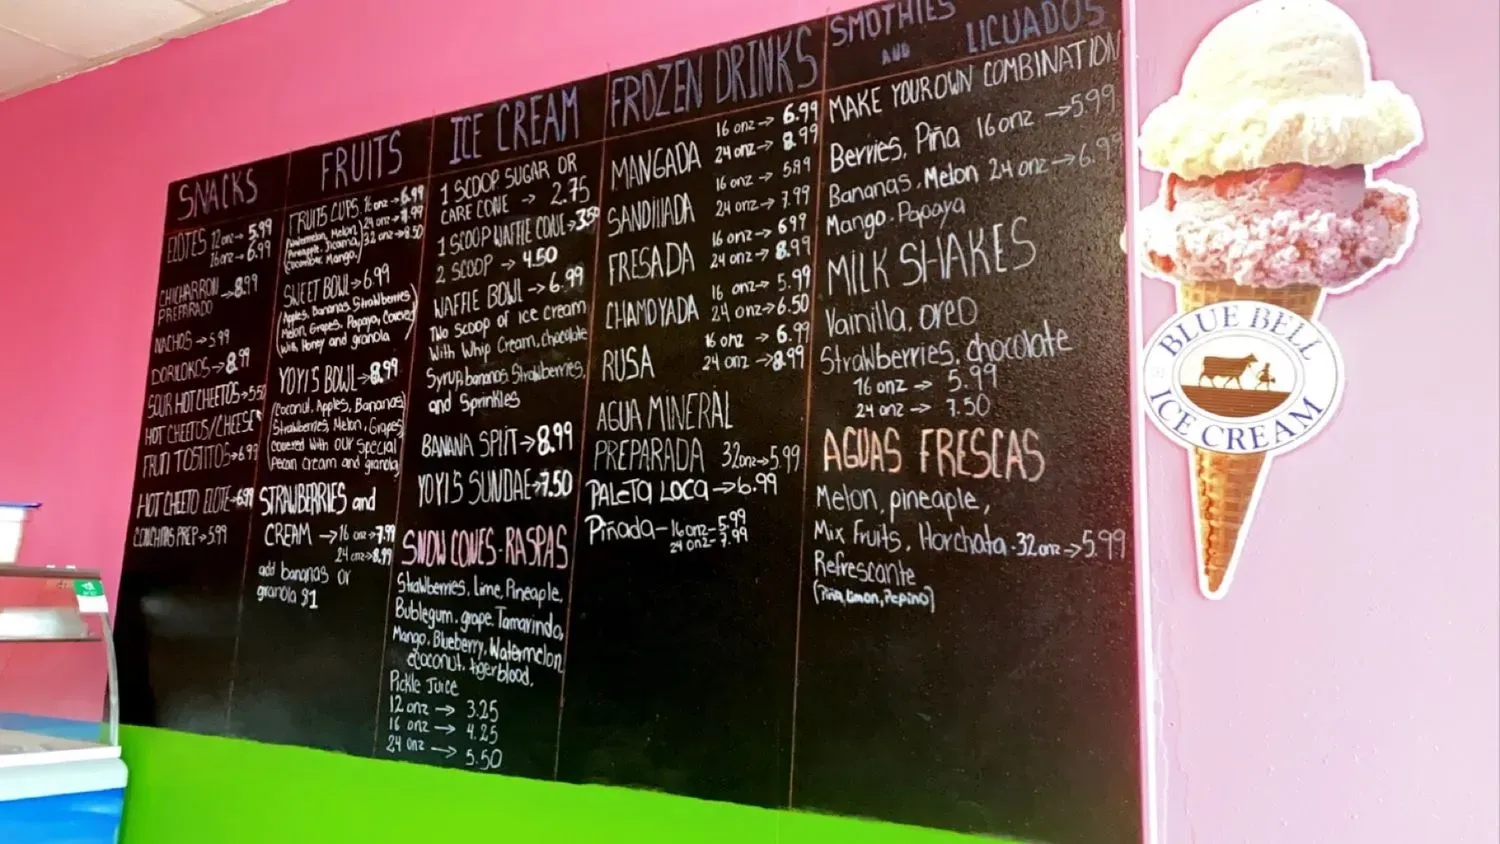 SNACKS
ELOTES 12onz→ 5.99
16onz→ 6.99
CHICHARRON →8.99
PREPARADO
NACHOS→5.99
DORILOKOS→8.99
SOUR HOT CHEETOS→5.50
HOT CHEETOS/CHEESE
TOSTITOS→6.99
HOT CHEETO ELOTE→6.99
CONCHITAS PREP→5.99
FRUITS
FRUITS CUPS 16onz→6.99
(Watermelon, Melon, 24onz→
Pineapple, Jicama, 32onz→
Cucumber, Mango,)
SWEET BOWL→6.99
(Apples, Bananas, Strawberries
Melon, Grapes, Papaya, Covered
with Honey and granola)
YOYI'S BOWL→8.99
(Coconut, Apples, Bananas,
Strawberries, Melon, Grapes,
Covered With our special
Pecan Cream and granola)
STRAWBERRIES and
CREAM →16 onz→7.99
24 onz→8.99
add bananas or
granola $1
ICE CREAM
1 SCOOP SUGAR OR
CAKE CONE → 2.75
1 SCOOP WAFFLE CONE→3.50
2 SCOOP → 4.50
WAFFLE BOWL→6.99
Two scoop of ice cream
With Whip Cream, chocolate
Syrup, bananas, Strawberries,
and Sprinkles
BANANA SPLIT→8.99
YOYI'S SUNDAE→7.50
SNOW CONES-RASPAS
Strawberries, Lime, Pineapple,
Bublegum, grape, Tamarindo,
Mango, Blueberry, Watermelon,
coconut, tigerblood,
Pickle Juice
12 onz → 3.25
16 onz → 4.25
24 onz → 5.50
FROZEN DRINKS
MANGADA 16 onz→ 6.99
24 onz→ 8.99
SANDIIIADA 16 onz→ 5.99
24 onz→ 7.99
FRESADA 16 onz→ 6.99
24 onz→ 8.99
CHAMOYADA 16 onz→ 5.99
24 onz→6.50
RUSA 16 onz→ 6.99
24 onz→8.99
AGUA MINERAL
PREPARADA 32onz→5.99
PALETA LOCA→6.99
Piñada-16onz-5.99
24 onz-7.99
SMOTHIES
AND LICUADOS
MAKE YOUR OWN COMBINATION
Berries, Piña 16onz →5.99
Bananas, Melon 24 onz→6.99
Mango-Papaya
MILK SHAKES
Vainilla, oreo
Strawberries, chocolate
16 onz → 5.99
24 onz → 7.50
AGUAS FRESCAS
Melon, pineapple,
Mix Fruits, Horchata-32onz→5.99
Refrescante
(Piña, Limon, Pepino)
BLUE BELL
ICE CREAM